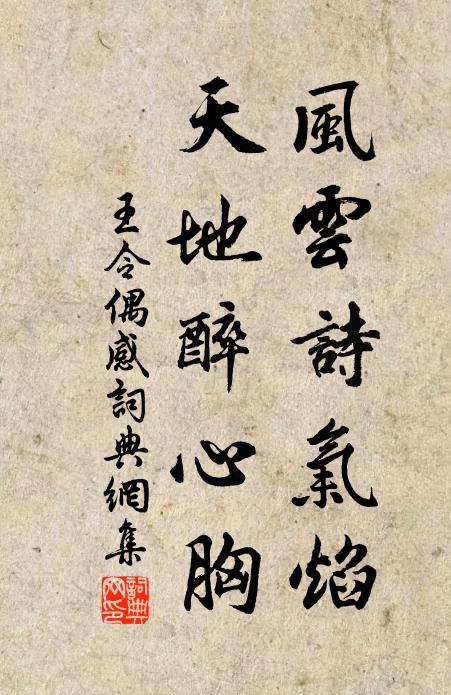 風雲詩氣焰
天地醉心胸
王令偶感詞典網集
詞典網印